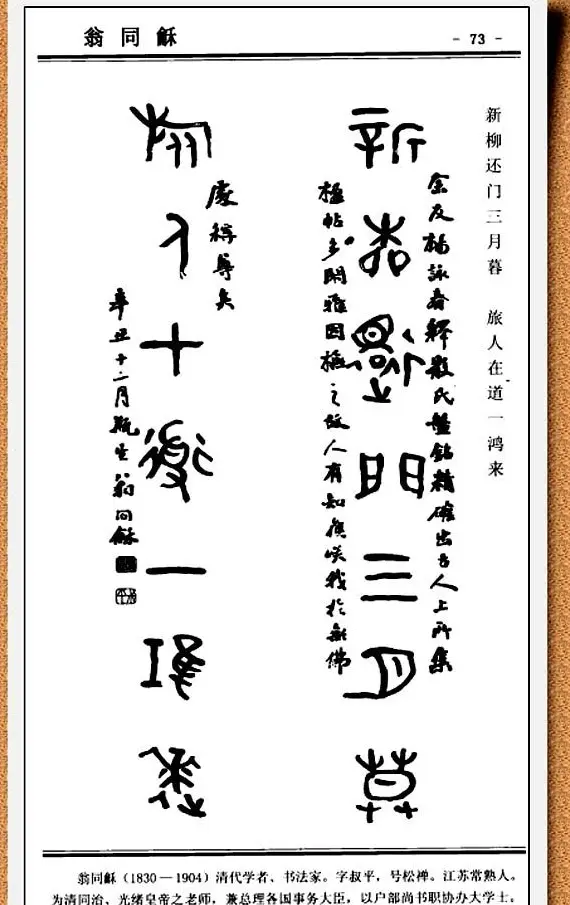 翁同龢
- 73 -
新柳还门三月暮 旅人在道一鸿来
新柳還門三月莫
余友楊詠春釋散氏盤銘精確出古人上所集
楹帖多閑雅因橅之故人有知咲我於無佛
處稱尊矣
旅人十道一鴻來
辛丑十二月瓶生翁同龢
翁同龢（1830—1904）清代学者、书法家。字叔平，号松禅。江苏常熟人。
为清同治、光绪皇帝之老师，兼总理各国事务大臣，以户部尚书职协办大学士。